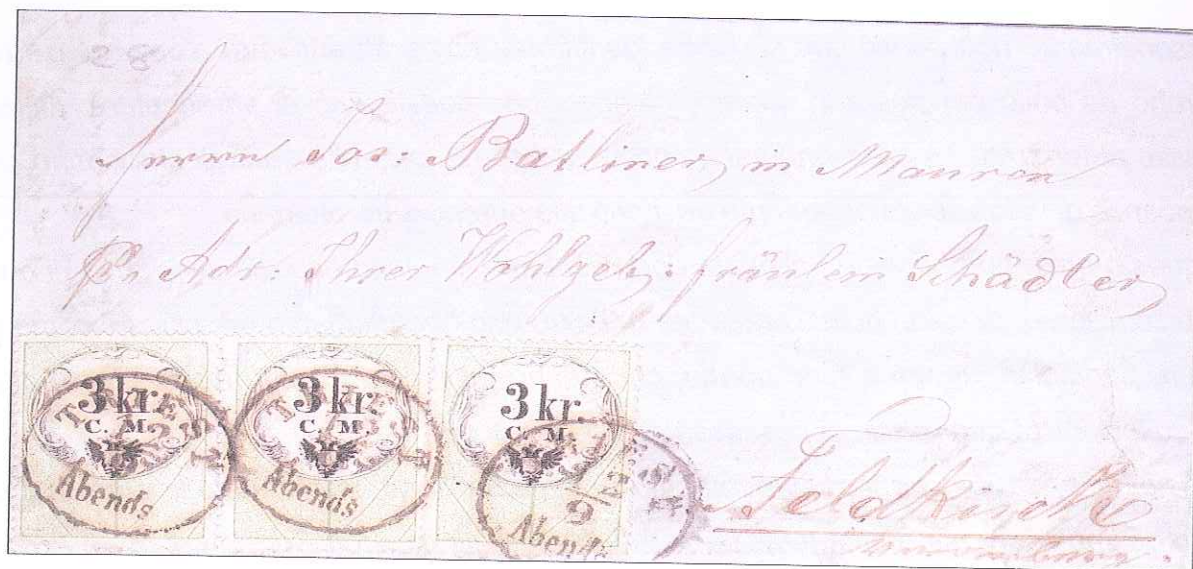 Herrn Jos: Batliner in Mauren
Pr. Adr: Ihrer Wohlgeb: Fräulein Schädler
3 kr.
C. M.
TRIEST
Abends
3 kr.
C. M.
TRIEST
Abends
3 kr.
C. M.
TRIEST
12/9
Abends
Feldkirch